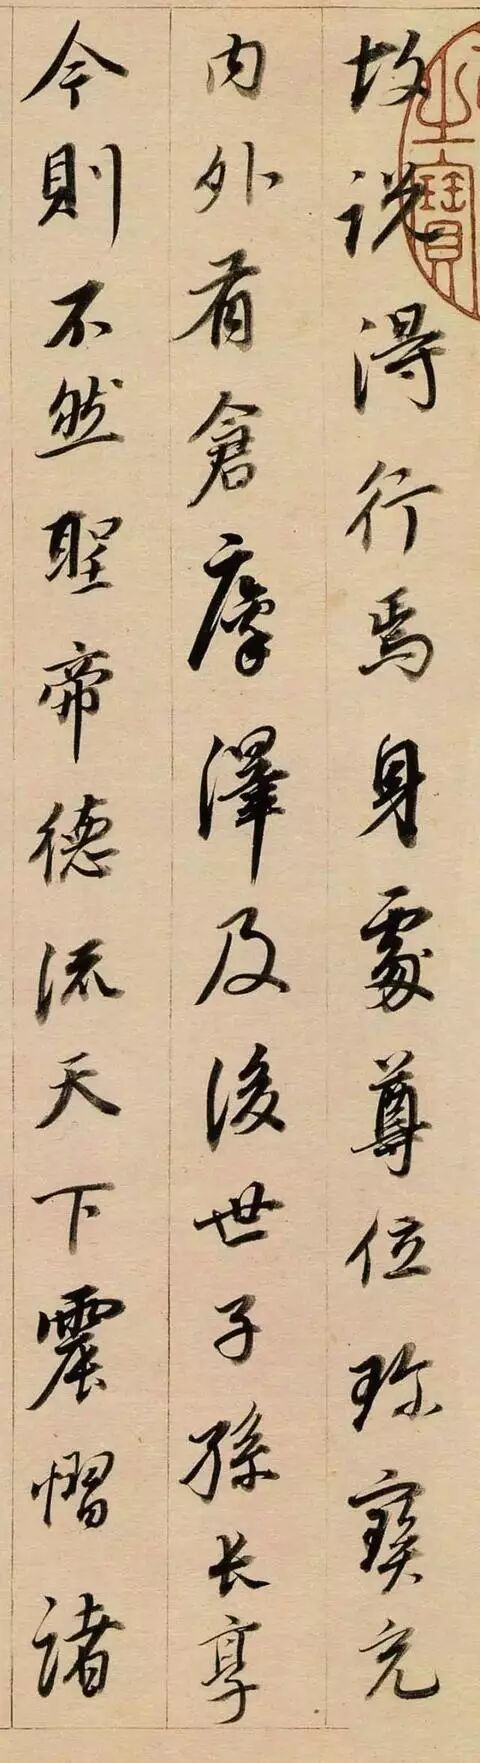 故說得行焉身處尊位珍寶充
內外有倉廩澤及後世子孫長享
今則不然聖帝德流天下震慴諸